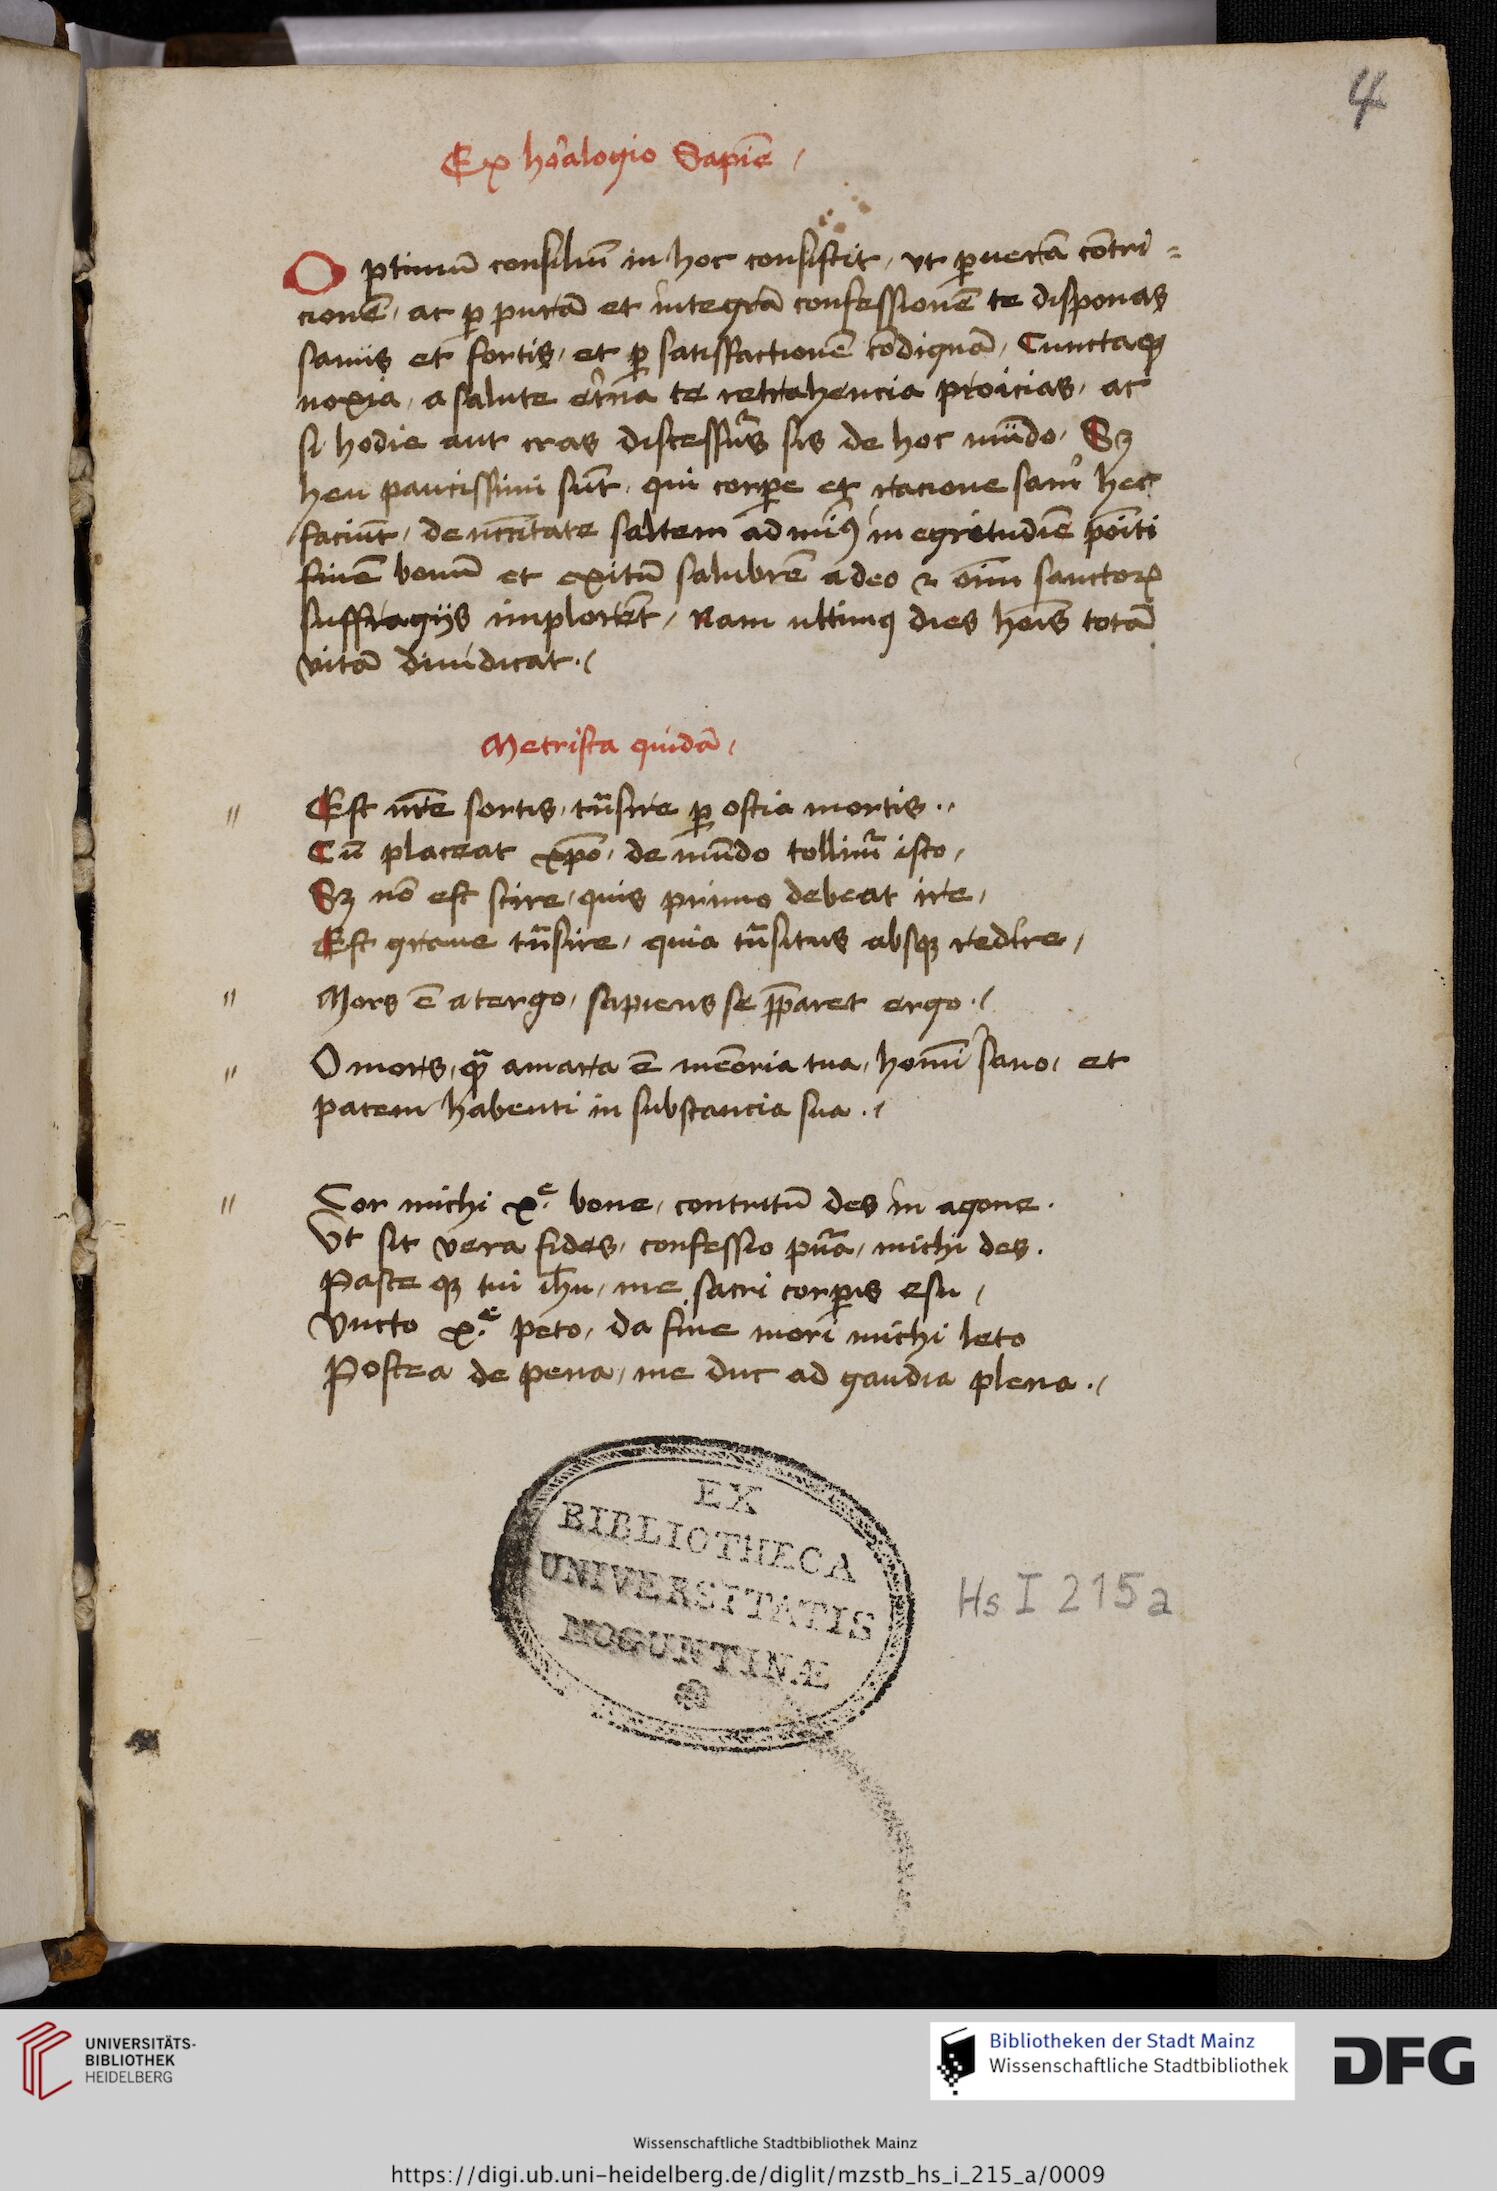 4
Ex hor̄alogio Sapīe /
Optimū consiliū in hoc consistit, vt ꝑ verā cōtri=
cionē, ac ꝑ purā et integrā confessionē te disponas
sanus et fortis, et ꝑ satisfactionē cōdignā, Cunctaqꝫ
noxia, a salute et̉na te retrahencia proicias, ac
si hodie aut cras discessur̉s sis de hoc mūdo, Sꝫ
heu paucissimi sūt, qui corꝑe et racione sani hec
faciūt, de nccītate saltem ad miꝰ in egritudīe poīti
finē bonū et exitū salubrē a deo ⁊ oīm sanctoꝝ
suffragijs implorēt, Nam ultimꝰ dies hoīs totā
vitā diiudicat ./
Metrista quidā /
〃 Est nr̄e sortis, tn̄sire ꝑ ostia mortis ..
Cū placeat xp̄o, de mūdo tollimr̉ isto,
Sꝫ nō est scire, quis primo debeat ire,
Est graue tn̄sire, quia tn̄situs absqꝫ redire,
〃 Mors ē a tergo, sapiens se p̄paret ergo ./
〃 O mors, qꝫ̄ amara ē mēoria tua, homī sano, et
pacem habenti in substancia sua ./
〃 Cor michi xᵉ. bone, contritū des in agone.
Vt sit vera fides, confessio pur̄a, michi des.
Pasce qꝫ tui ih̄u, me sacri corꝑis esu,
Vncto xᵉ. peto, da fine mori michi leto
Postea de pena, me duc ad gaudia plena ./
EX
BIBLIOTHECA
UNIVERSITATIS
MOGUNTINÆ
Hs I 215a
UNIVERSITÄTS-
BIBLIOTHEK
HEIDELBERG
Bibliotheken der Stadt Mainz
Wissenschaftliche Stadtbibliothek
DFG
Wissenschaftliche Stadtbibliothek Mainz
https://digi.ub.uni-heidelberg.de/diglit/mzstb_hs_i_215_a/0009